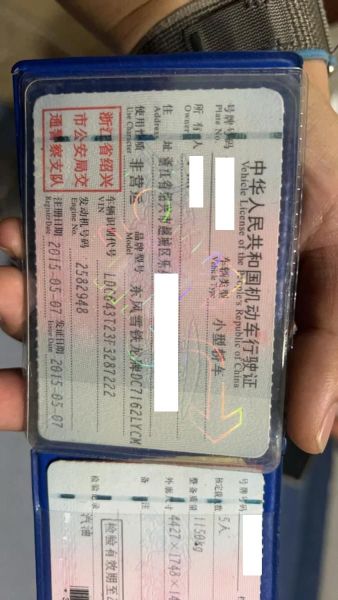 中华人民共和国机动车行驶证
Vehicle License of the People's Republic of China
号牌号码
Plate No.
车辆类型 小型轿车
Vehicle Type
所有人
Owner
住址 浙江省绍兴市越城区东
Address
使用性质 非营运
Use Character
品牌型号 东风雪铁龙牌DC7162LYCM
Model
浙江省绍兴
市公安局交
通警察支队
车辆识别代号 LDC643T23F3287222
VIN
发动机号码 2582948
Engine No.
注册日期 2015-05-07 发证日期 2015-05-07
Register Date Issue Date
号牌号码
核定载人数 5人
整备质量 1150kg
外廓尺寸 4427×1748×14
备注
检验有效期至
检验记录
汽油